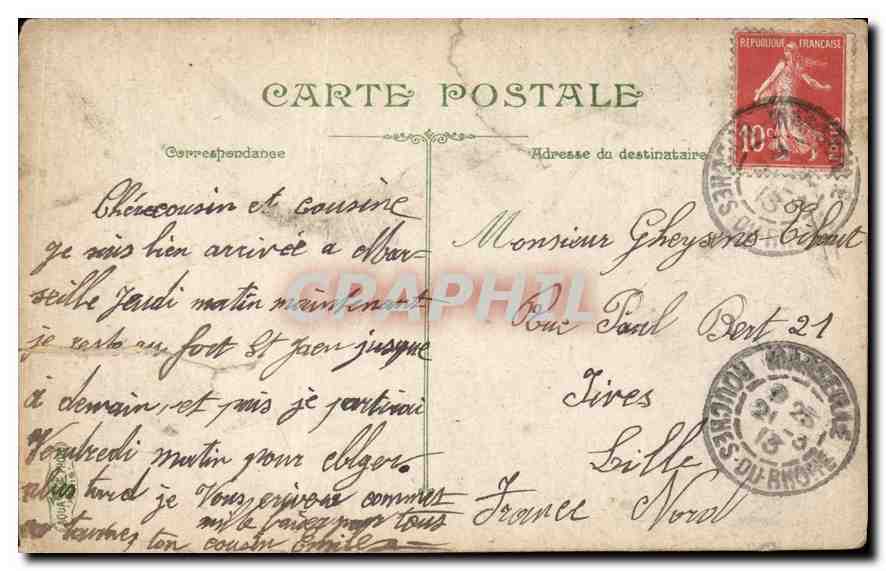 CARTE POSTALE
Correspondance
Adresse du destinataire
REPUBLIQUE FRANÇAISE
10c
Chère cousin et cousine
je suis bien arrivée a Mar-
seille Jeudi matin maintenant
je reste au fort St Jaen jusque
à demain, et puis je partirai
Vendredi matin pour
plus tard je Vous comment
mille baiser pour tous
ton cousin Emile
Monsieur Gheysens
Rue Paul Bert 21
Fives
Lille
France Nord
MARSEILLE
BOUCHES-DU-RHONE
25
21 - 3
13
GRAPHIL